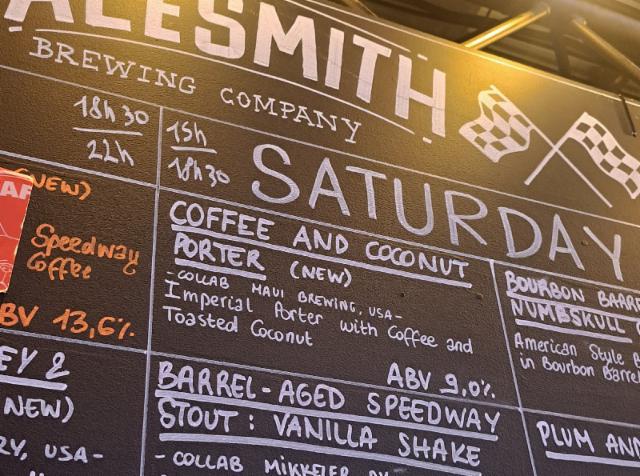 ALESMITH
BREWING COMPANY
18h30
22h
15h
18h30
SATURDAY
(NEW)
Speedway
Coffee
ABV 13,6%
COFFEE AND COCONUT
PORTER (NEW)
-COLLAB MAUI BREWING, USA-
Imperial Porter with Coffee and
Toasted Coconut
ABV 9,0%
BOURBON BARR
NUMBSKULL
American Style B
in Bourbon Barrel
EY 2
NEW)
USA-
BARREL-AGED SPEEDWAY
STOUT: VANILLA SHAKE
-COLLAB MIKKELER
PLUM AN